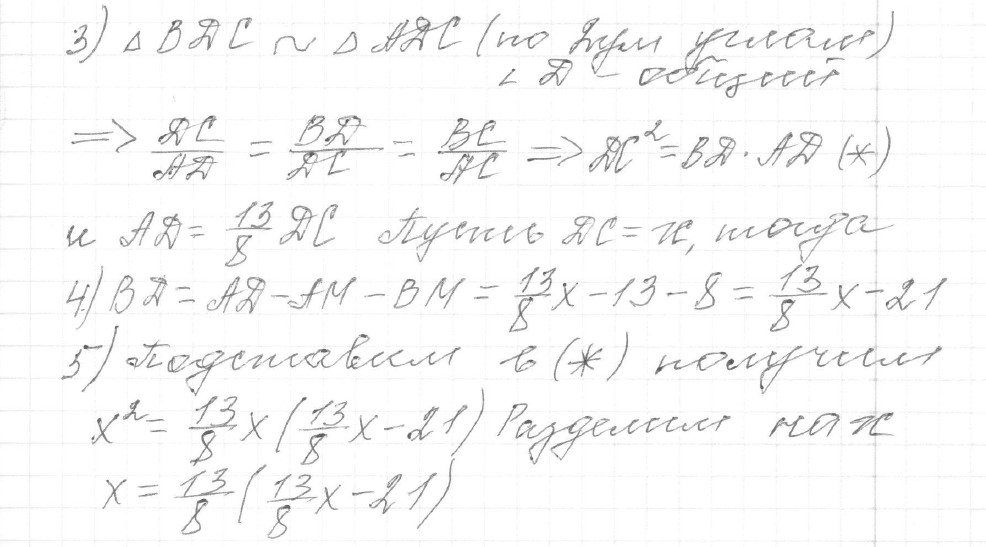 3) △ BDC ~ △ ADC (по двум углам)
∠ D – общий
=> DC/AD = BD/DC = BC/AC => DC² = BD · AD (*)
и AD = 13/8 DC Пусть DC = x, тогда
4) BD = AD – AM – BM = 13/8 x – 13 – 8 = 13/8 x – 21
5) Подставим в (*) получим
x² = 13/8 x (13/8 x – 21) Разделим на x
x = 13/8 (13/8 x – 21)